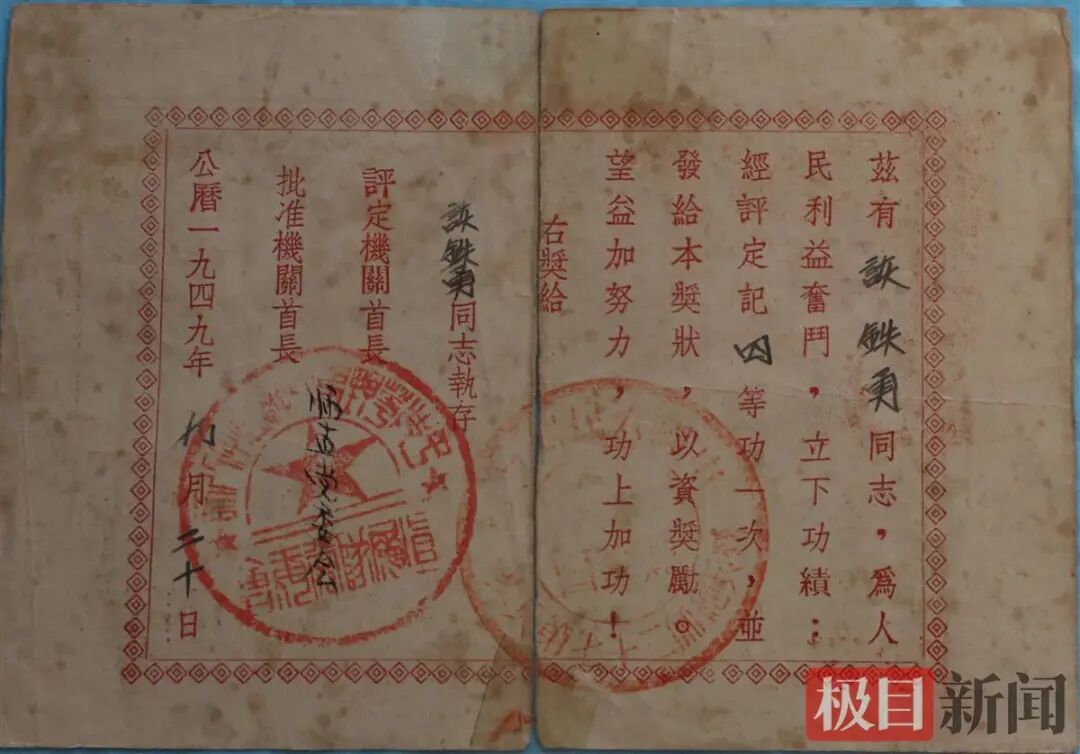 茲有 鉄勇同志，爲人
民利益奮鬥，立下功績：
經評定記四等功一次，並
發給本獎狀，以資獎勵。
望益加努力，功上加功！
右獎給
鉄勇同志執存
評定機關首長
批准機關首長
师直党委会
公曆一九四九年九月二十日
极目新闻